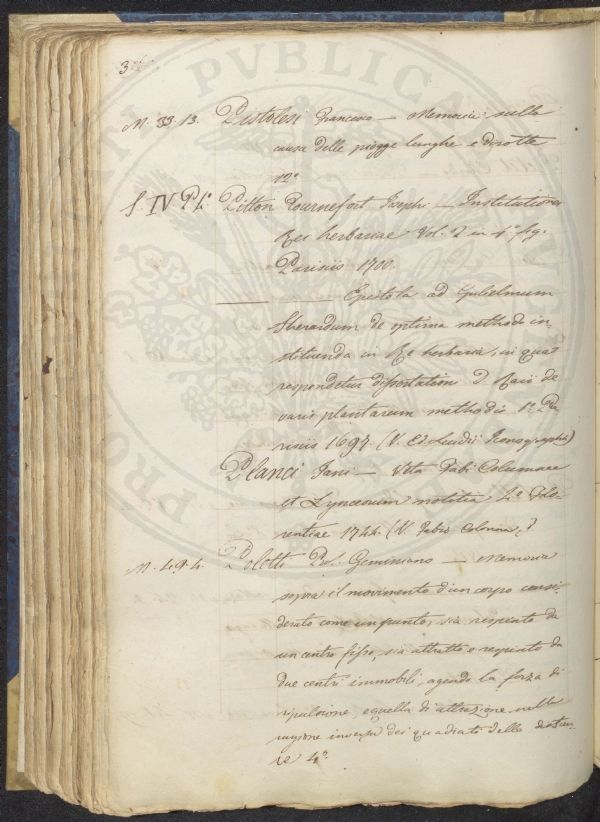 M. 33. 13. Pistolesi Francesco — Memorie sulla
cause delle piogge lunghe e dirotte
12º
S. IV Pl.º Pitton Tournefort Josephi — Institutiones
Rei herbariae Vol. 2 in 4º fig.
Parisiis 1700.
——— Epistola ad Gulielmum
Sherardum de optima methodo in-
stituenda in Re herbaria, in qua
respondetur dissertationi D. Raii de
variis plantarum methodis 12. Pa-
risiis 1697 (V. Iconographia)
Planci Jani — Vita Fabi Columnae
et Lynceorum notitia 4º Flo-
rentiae 1744. (V. Fabio Colonna)
M. 49. 4. Geminiano — Memoria
sopra il movimento d'un corpo consi-
derato come un punto, sia respinto da
un centro fisso, sia attratto e respinto da
due centri immobili, agendo la forza di
ripulsione, e quella di attrazione nella
ragione inversa dei quadrati delle distan-
ze 4º.
PVBLICA